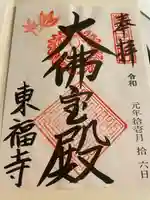 奉拝
令和
元年拾壱月拾六日
大佛宝殿
東福寺